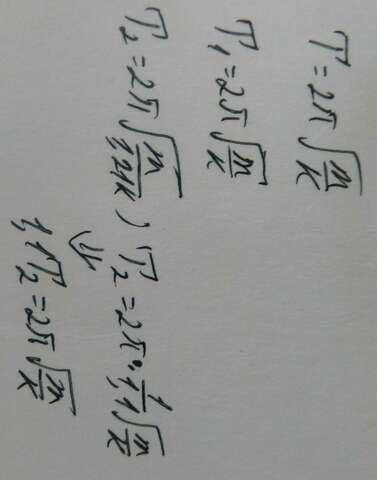 T = 2π√(m/k)
T₁ = 2π√(m/k)
T₂ = 2π√(m/1,21k) ) T₂ = 2π · 1/1,1 √(m/k)
⇓
1,1T₂ = 2π√(m/k)